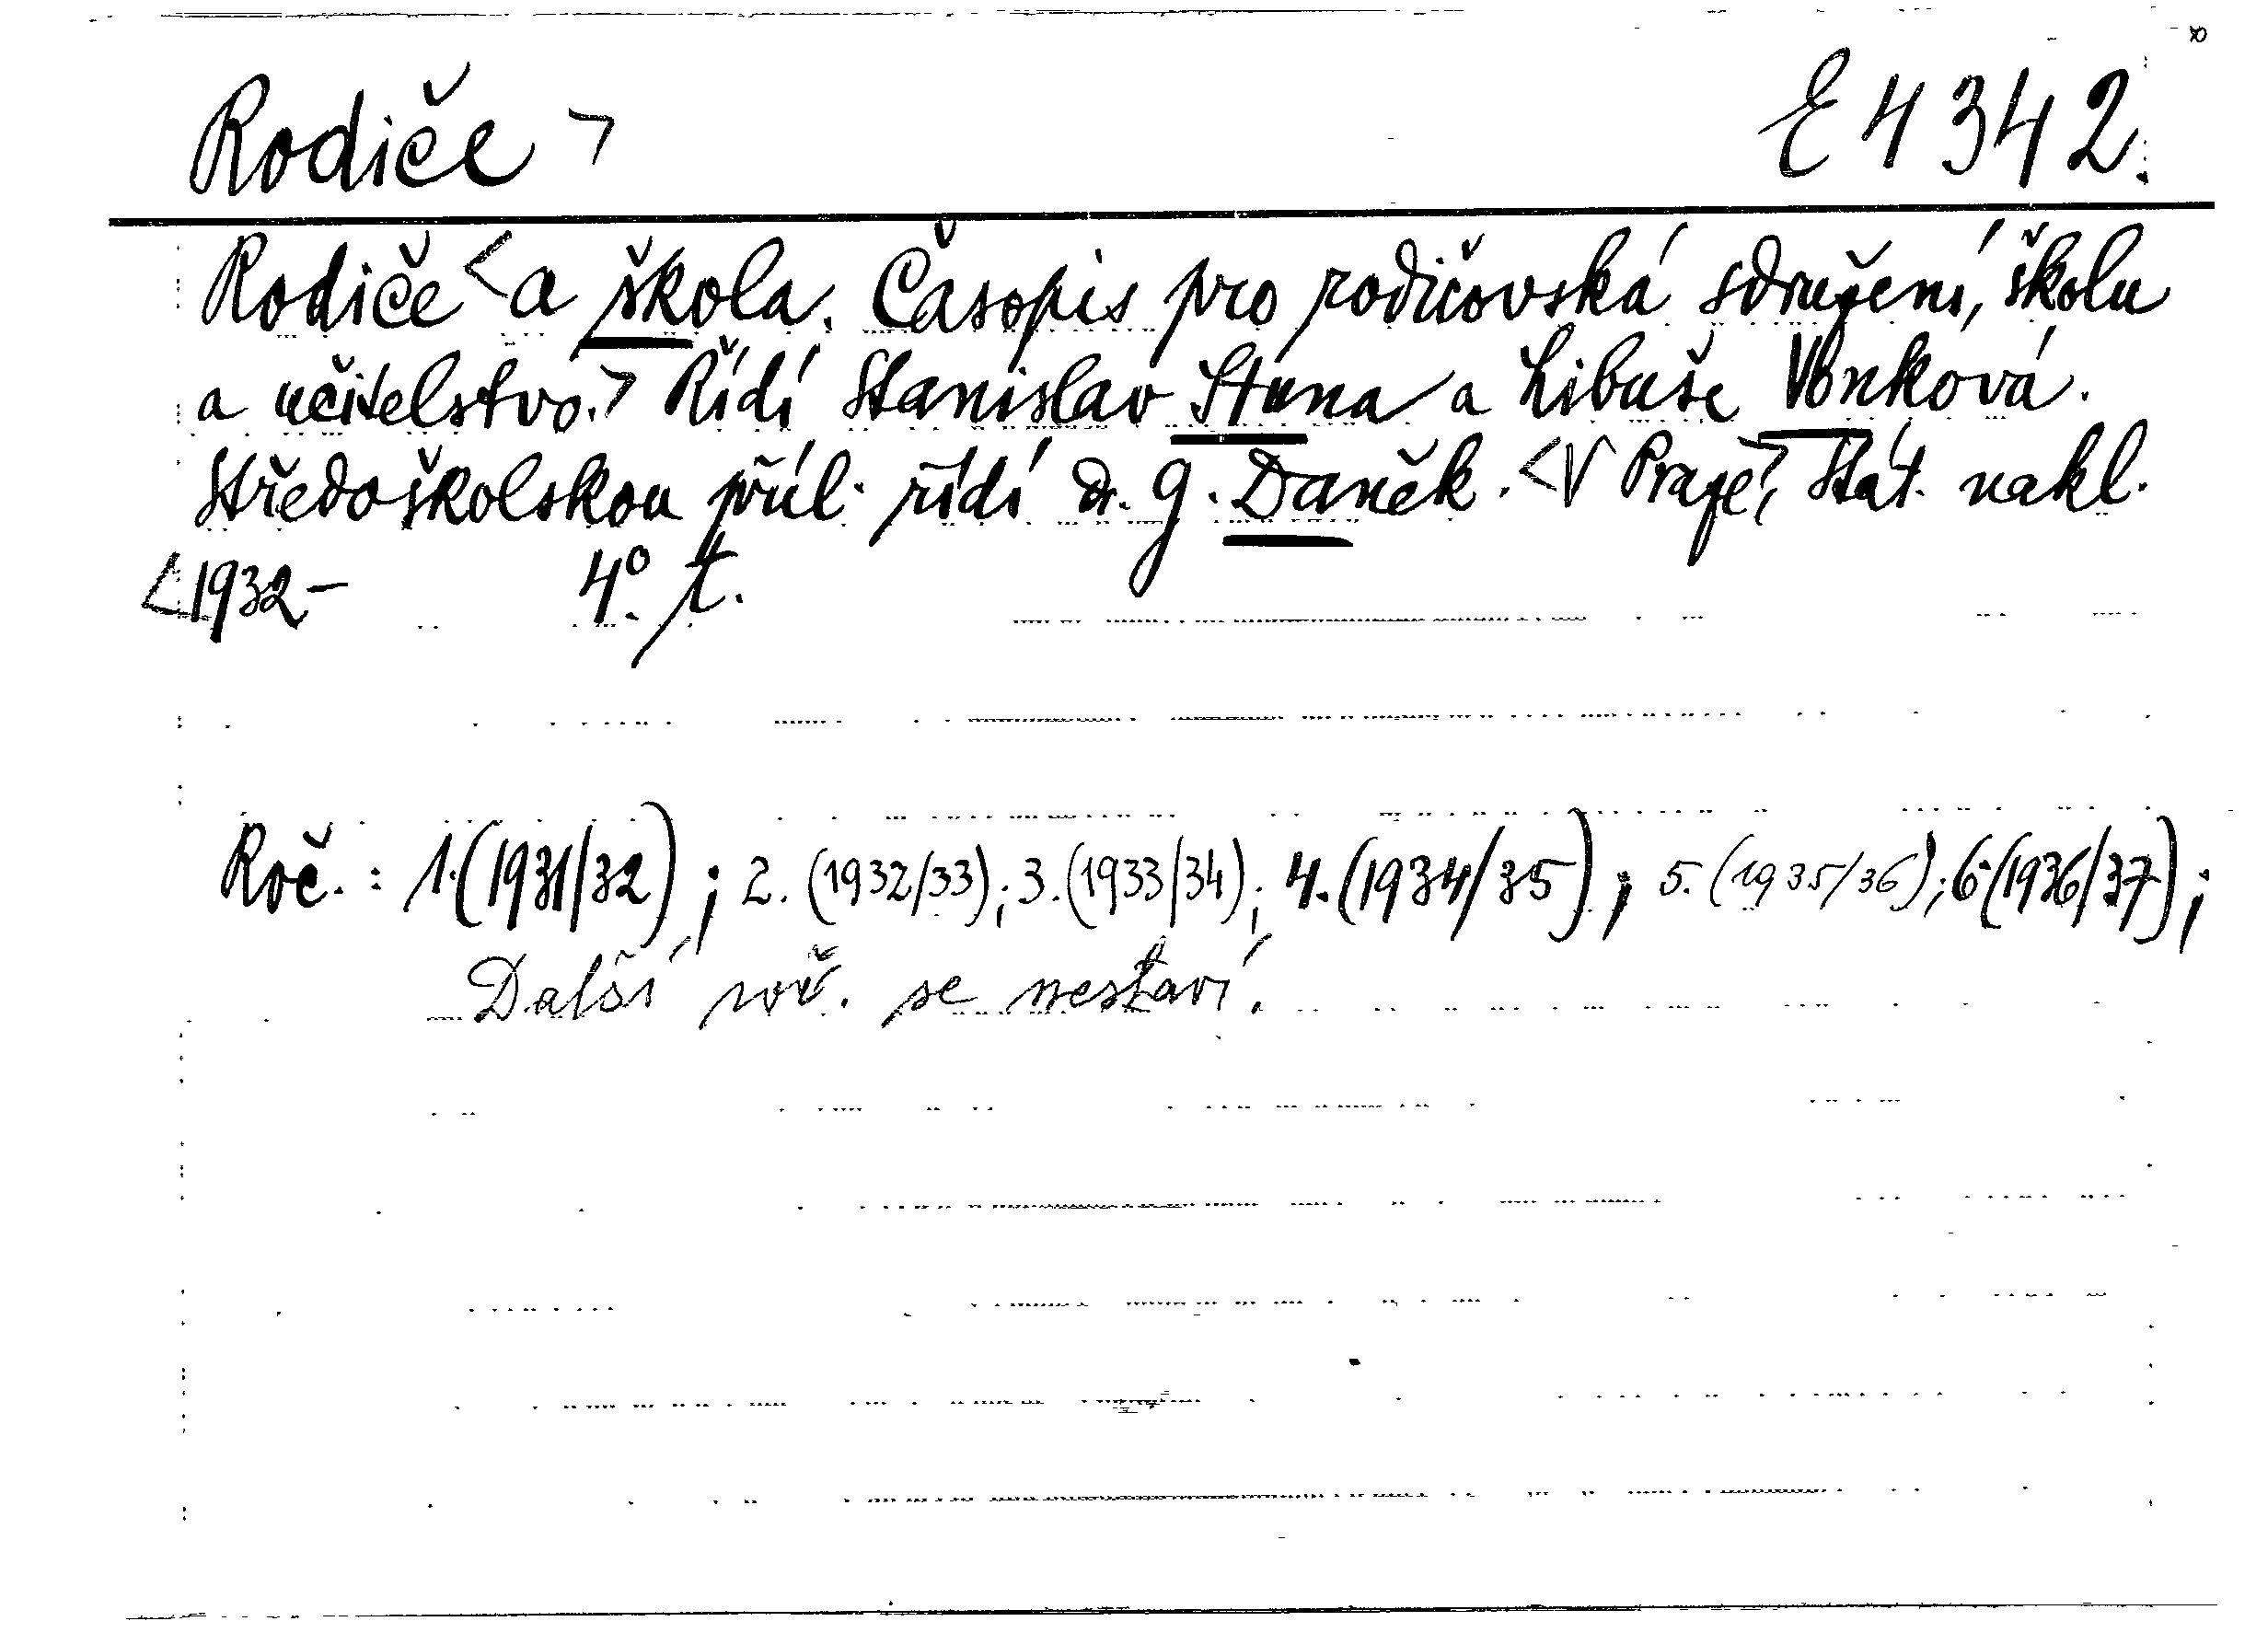 Rodiče > E 4342.
Rodiče < a škola. Časopis pro rodičovská sdružení, školu
a učitelstvo. > Řídí Stanislav Stuna a Libuše Vonková.
Středoškolskou příl. řídí dr. G. Daněk. < V Praze >, Stát. nakl.
< 1932 – 4°. t.
Roč. : 1. (1931/32) ; 2. (1932/33) ; 3. (1933/34) ; 4. (1934/35) ; 5. (1935/36) ; 6. (1936/37) ;
Další roč. se nestaví.